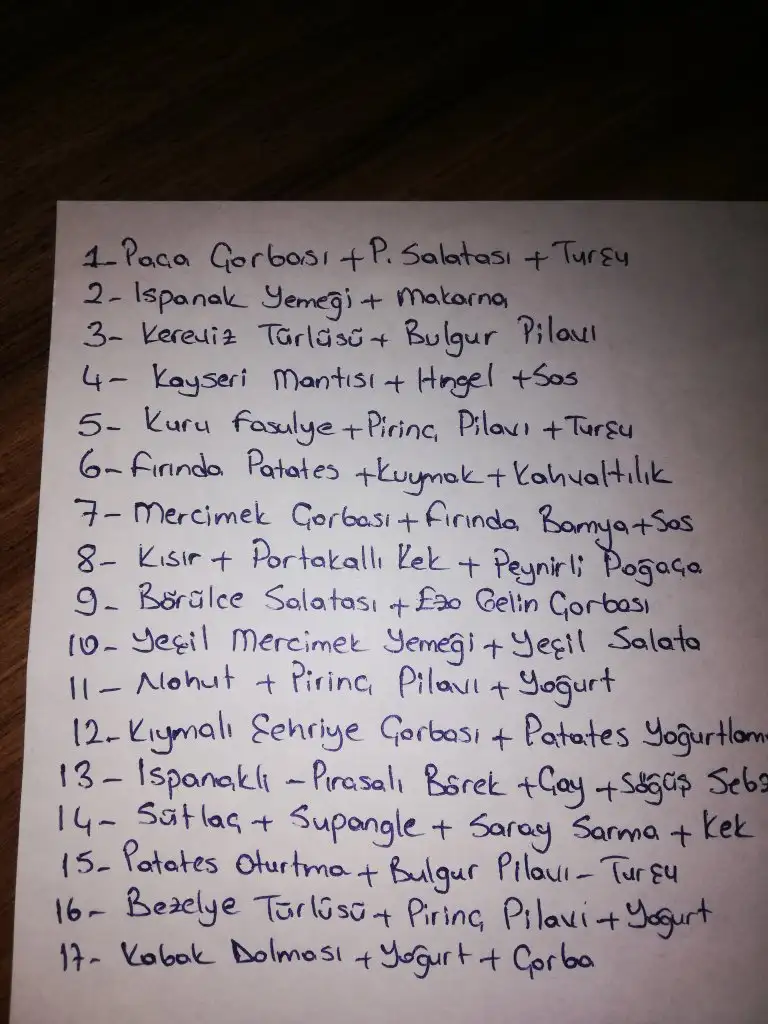 1- Paça Çorbası + P. Salatası + Turşu
2- Ispanak Yemeği + Makarna
3- Kereviz Türlüsü + Bulgur Pilavı
4- Kayseri Mantısı + Hıngel + Sos
5- Kuru Fasulye + Pirinç Pilavı + Turşu
6- Fırında Patates + Kuymak + Kahvaltılık
7- Mercimek Çorbası + Fırında Bamya + Sos
8- Kısır + Portakallı Kek + Peynirli Poğaça
9- Börülce Salatası + Ezo Gelin Çorbası
10- Yeşil Mercimek Yemeği + Yeşil Salata
11- Nohut + Pirinç Pilavı + Yoğurt
12- Kıymalı Şehriye Çorbası + Patates Yoğurtlam
13- Ispanaklı - Pırasalı Börek + Çay + Söğüş Sebz
14- Sütlaç + Supangle + Saray Sarma + Kek
15- Patates Oturtma + Bulgur Pilavı - Turşu
16- Bezelye Türlüsü + Pirinç Pilavi + Yoğurt
17- Kabak Dolması + Yoğurt + Çorba